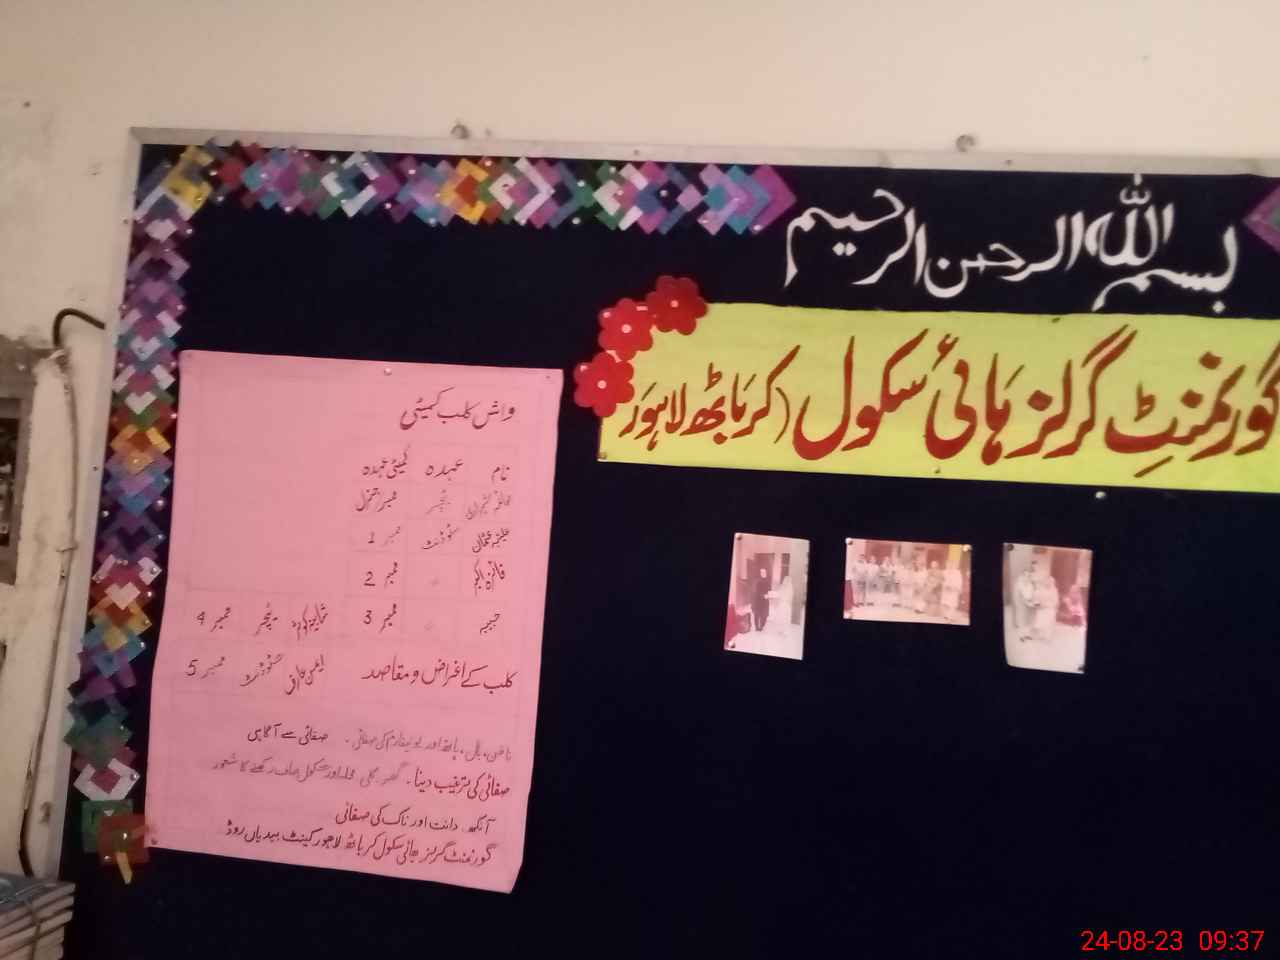 بسم اللہ الرحمن الرحیم
گورنمنٹ گرلز ہائی سکول (کرباٹھ لاہور
واش کلب کمیٹی
نام عہدہ کمیٹی عہدہ
ٹیچر ممبر جنرل
علیشہ عثمان سٹوڈنٹ ممبر 1
فائزہ ممبر 2
حبیبہ ممبر 3
ٹیچر ممبر 4
کلب کے اغراض و مقاصد
ایمن عارف سٹوڈنٹ ممبر 5
ناخن، بال، ہاتھ اور یونیفارم کی صفائی۔ صفائی سے آگاہی
صفائی کی ترغیب دینا۔ گھر، گلی محلہ اور سکول صاف رکھنے کا شعور
آنکھ، دانت اور ناک کی صفائی
گورنمنٹ گرلز ہائی سکول کرباٹھ لاہور کینٹ بیدیاں روڈ
24-08-23 09:37